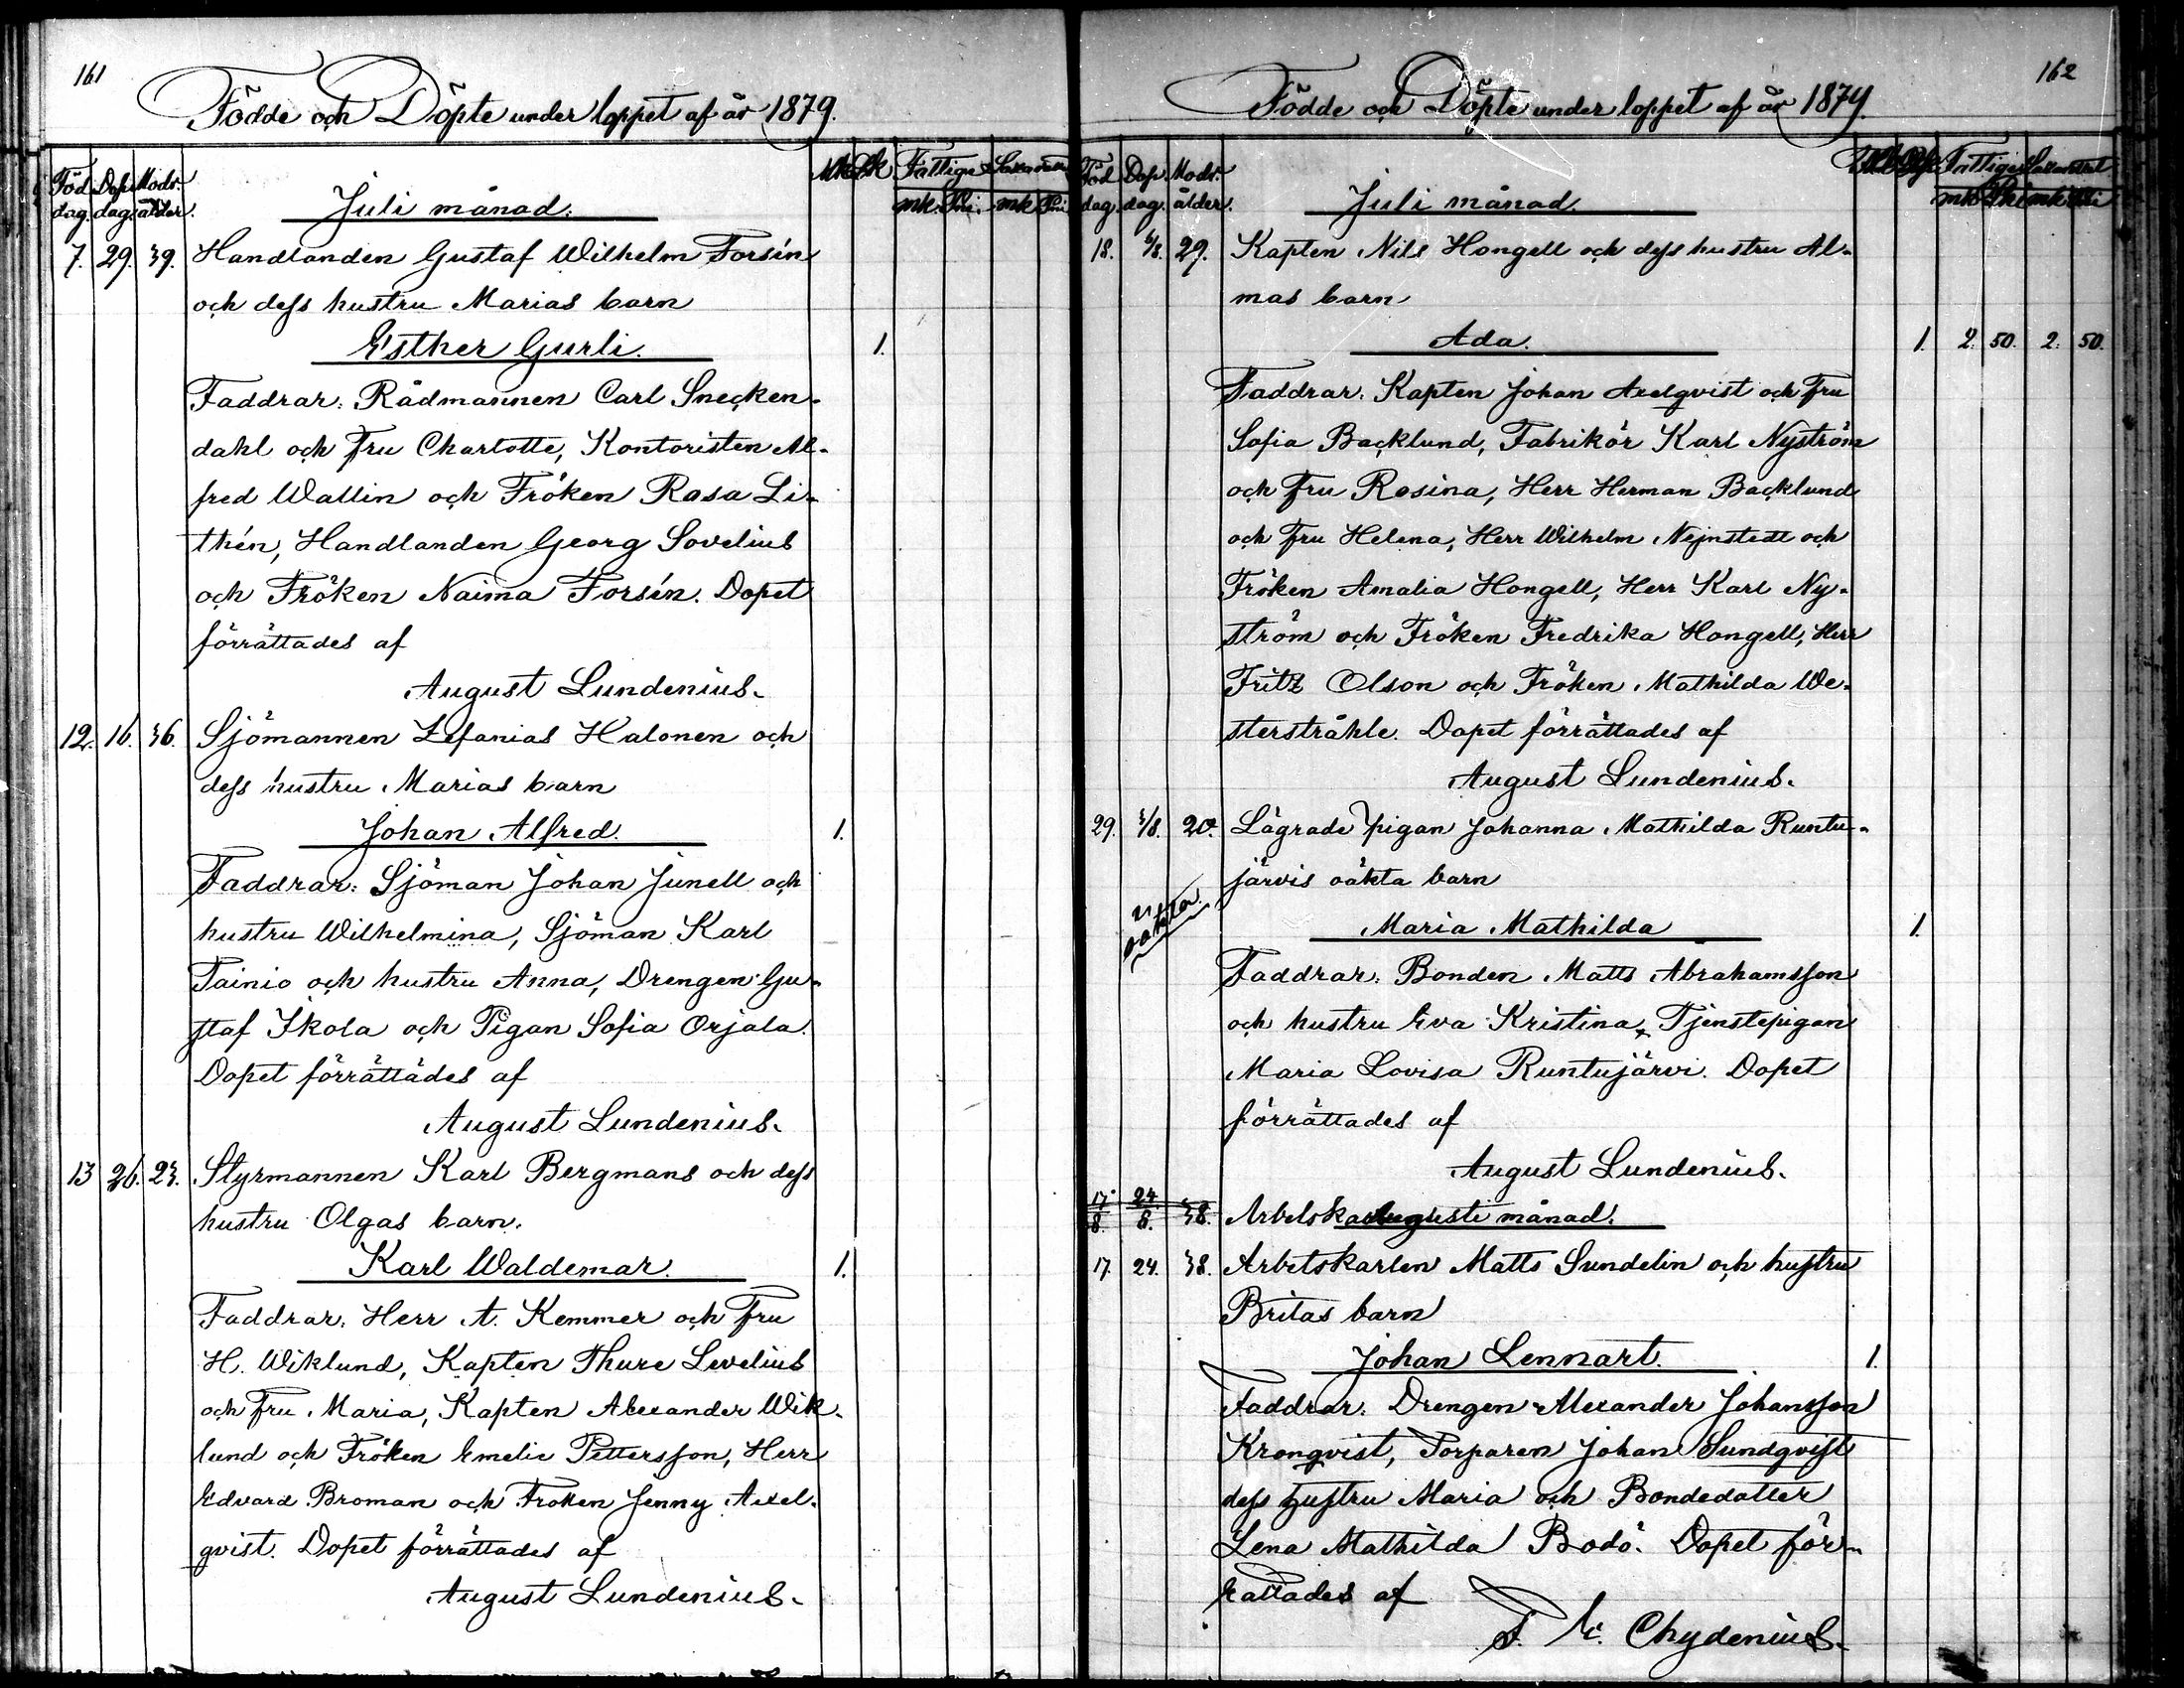 161
Födde och Döpte under loppet af år 1879.
Föd. dag. Dop. dag. Modr. ålder. Mk Qk Fattige mk. Pni. mk Pni
Juli månad.
7. 29. 39. Handlanden Gustaf Wilhelm Forsén
och dess hustru Marias barn
Esther Gurli. 1.
Faddrar: Rådmannen Carl Snecken-
dahl och Fru Charlotte, Kontoristen Al-
fred Wallin och Fröken Rosa Li-
thén, Handlanden Georg Sovelius
och Fröken Naima Forsén. Dopet
förrättades af
August Lundenius.
12. 16. 36. Sjömannen Zefanias Halonen och
dess hustru Marias barn
Johan Alfred. 1.
Faddrar: Sjöman Johan Junell och
hustru Wilhelmina, Sjöman Karl
Tainio och hustru Anna, Drengen Gu-
staf Ikola och Pigan Sofia Orjala.
Dopet förrättades af
August Lundenius.
13 26. 23. Styrmannen Karl Bergmans och dess
hustru Olgas barn.
Karl Waldemar. 1.
Faddrar. Herr A. Kemmer och Fru
H. Wiklund, Kapten Thure Levelius
och Fru Maria, Kapten Alexander Wik-
lund och Fröken Emelie Pettersson, Herr
Edvard Broman och Fröken Jenny Axel-
qvist. Dopet förrättades af
August Lundenius.
162
Födde och Döpte under loppet af år 1879.
Föd dag. Dop. dag. Modr. ålder. Fattige mk Pni mk Pni
Juli månad.
18. 3/8. 29. Kapten Nils Hongell och dess hustru Al-
mas barn
Ada. 1. 2. 50. 2. 50.
Faddrar. Kapten Johan Axelqvist och Fru
Sofia Backlund, Fabrikör Karl Nyström
och Fru Rosina, Herr Herman Backlund
och Fru Helena, Herr Wilhelm Nejnstedt och
Fröken Amalia Hongell, Herr Karl Ny-
ström och Fröken Fredrika Hongell, Herr
Fritz Olson och Fröken Mathilda We-
stersträhle. Dopet förrättades af
August Lundenius.
29. 3/8. 20. Lägrade pigan Johanna Mathilda Runtu-
järvis oäkta barn
oäkta.
Maria Mathilda 1.
Faddrar: Bonden Matts Abrahamsson
och hustru Eva Kristina, Tjenstepigan
Maria Lovisa Runtujärvi. Dopet
förrättades af
August Lundenius.
17/8. 24/8. 38. Arbetskar Augusti månad.
17. 24. 38. Arbetskarlen Matts Sundelin och hustru
Britas barn
Johan Lennart. 1.
Faddrar. Drengen Alexander Johansson
Kronqvist, Torparen Johan Sundqvist
dess hustru Maria och Bondedotter
Lena Mathilda Bodö. Dopet för-
rättades af
F. E. Chydenius.